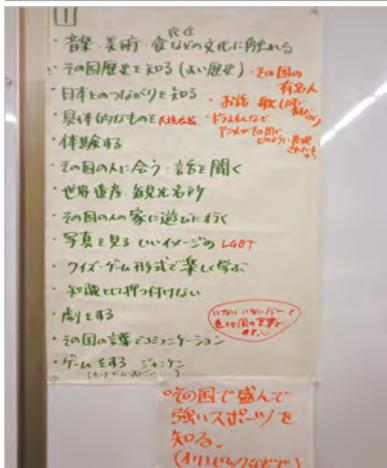 11
・音楽・美術・食などの文化に触れる
・その国歴史を知る(よい歴史)
・その国の有名人
・日本とのつながりを知る
・お話
・具体的なものを 民族衣装
・ドラえもんなど
アニメがその国で
どのように
・体験する
・その国の人に会う・話を聞く
・世界遺産・観光名所
・その国の人の家に遊びに行く
・写真を見る いいイメージの LGBT
・クイズ・ゲーム形式で楽しく学ぶ
・知識として押し付けない
・劇をする
いないいないバーを
色んな国の言葉で
・その国の言葉でコミュニケーション
・ゲームをする ジャンケン
○その国で盛んで
強いスポーツを
知る。
(オリンピックなどで)